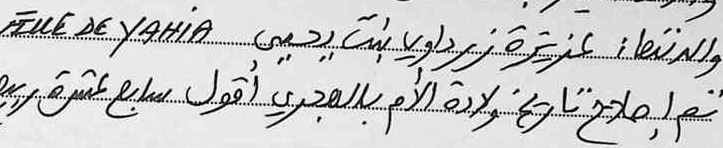 والدتها: عزيزة زرداويا بنت يحيى FILLE DE YAHIA
تم إصلاح تاريخ ولادة الأم بالهجري أقول سابع عشرة ربيع